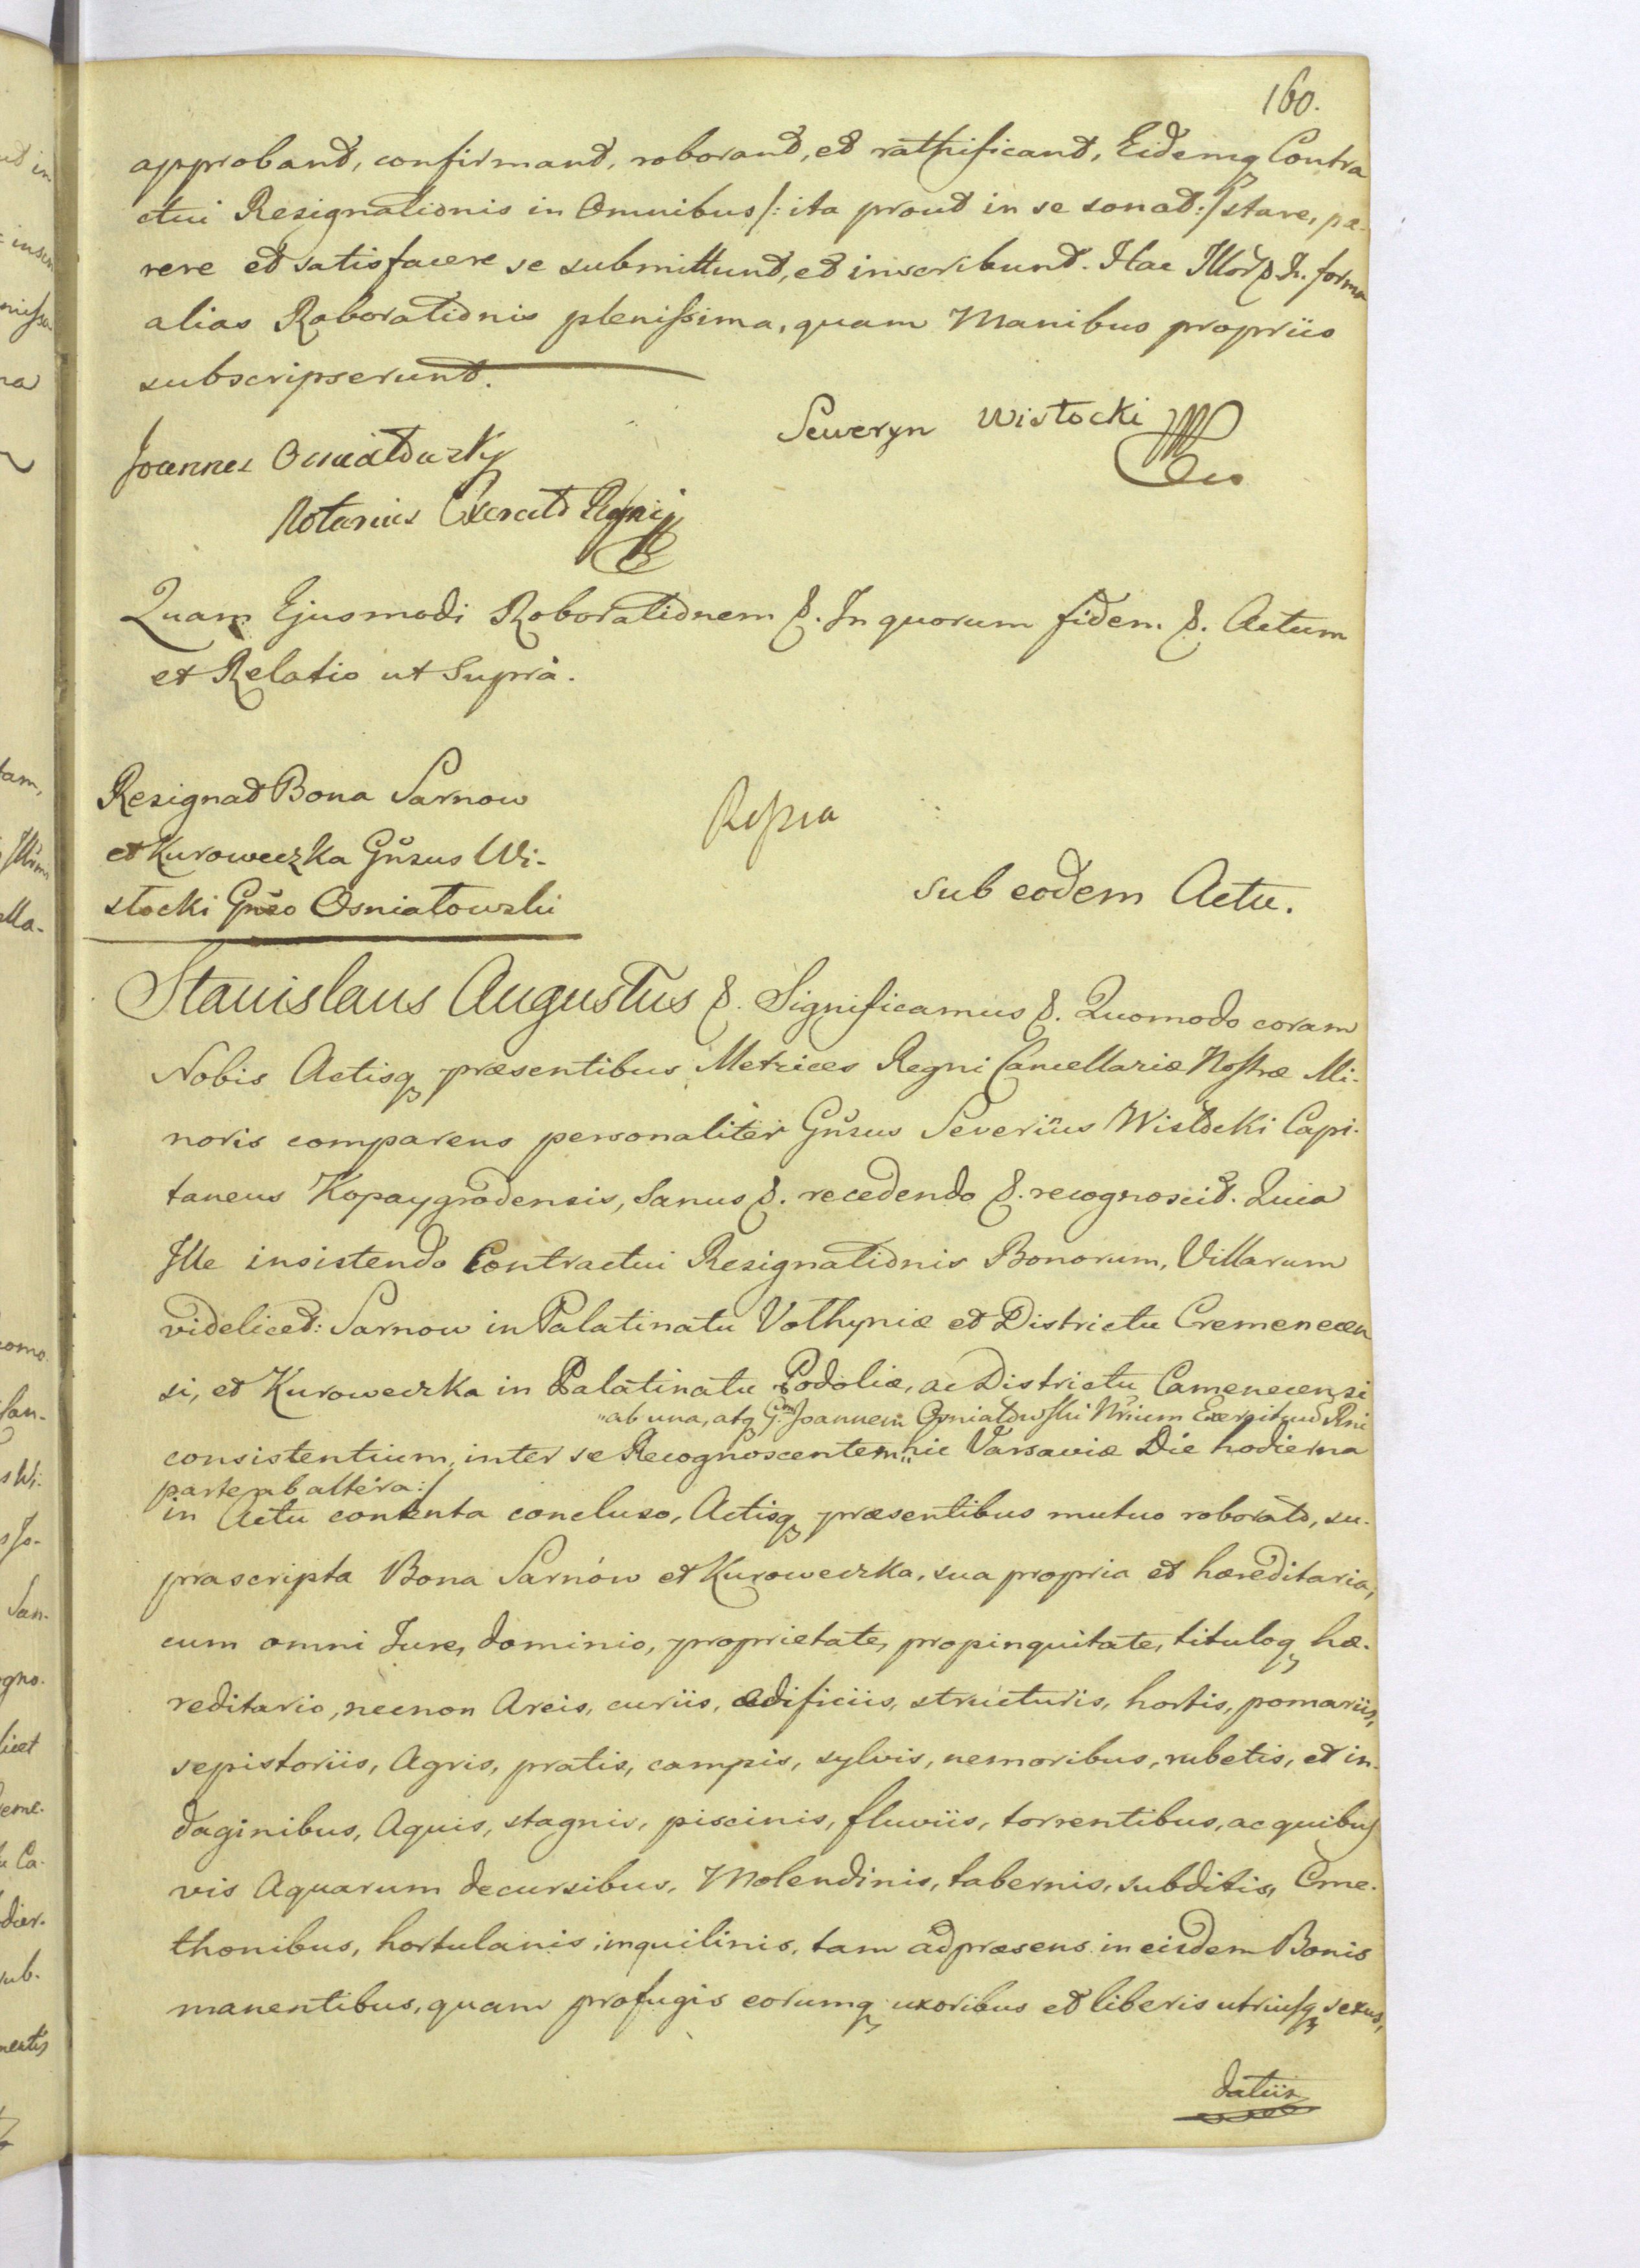 160.
approbant, confirmant, roborant, et rathificant, Eidemq Contra
ctui Resignationis in Omnibus /: ita prout in se sonat :/ stare, pa-
rere et satisfacere se submittunt, et inscribunt. Hac forma
alias Roborationis plenissima, quam Manibus propriis
subscripserunt.
Seweryn Wisłocki
Joannes Osniałowsky
Notarius Exercit Regni
Quam Ejusmodi Roborationem &. In quorum fidem &. Actum
et Relatio ut Suprà.
Resignat Bona Sarnow
et Kuroweczka Gnsus Wi-
słocki Gnso Osniatowski
Rossia
sub eodem Actu.
Stanislaus Augustus &. Significamus &. Quomodo coram
Nobis Actisq præsentibus Metrices Regni Cancellariæ Nostræ Mi-
noris comparens personaliter Gnsus Severius Wisłocki Capi-
taneus Kopaygrodensis, Sanus &. recedendo &. recognoscit. Quia
Ille insistendo Contractui Resignationis Bonorum, Villarum
videlicet: Sarnow in Palatinatu Volhyniæ et Districtu Cremenecen
si, et Kuroweczka in Palatinatu Podoliæ, ac Districtu Camenecensi
"ab una, atq Gm Joannem Osniatowski Nrium Exercituu Rni
consistentium, inter se Recognoscentem" hic Varsaviæ Die hodierna
parte ab altera :/
in Actu contenta concluso, Actisq præsentibus mutuo roborato, su-
prascripta Bona Sarnów et Kuroweczka, sua propria et hæreditaria,
cum omni Jure, dominio, proprietate, propinquitate, tituloq hæ-
reditario, necnon Areis, curiis, ædificiis, structuris, hortis, pomariis,
sepistoriis, Agris, pratis, campis, sylvis, nemoribus, rubetis, et in-
daginibus, Aquis, stagnis, piscinis, fluviis, torrentibus, ac quibus
vis Aquarum decursibus, Molendinis, tabernis, subditis, Cme-
thonibus, hortulanis, inquilinis, tam ad præsens in eisdem Bonis
manentibus, quam profugis eorumq uxoribus et liberis utriusq sexus,
datiis